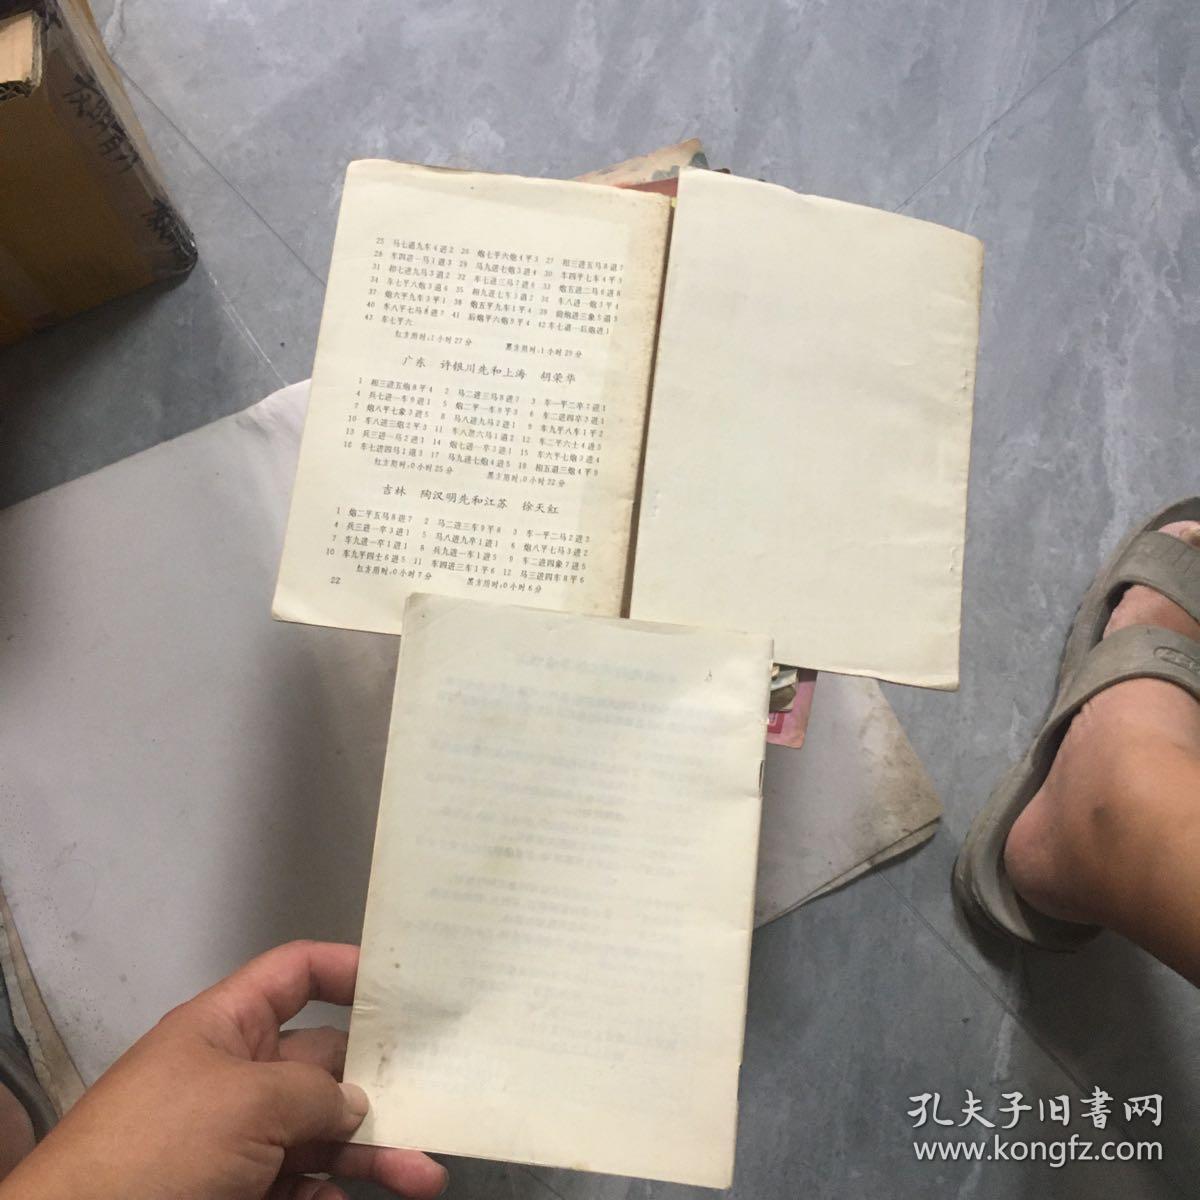 25 马七退九车4进2 26 炮七平六炮4平3 27 相三进五马8退7
28 车四进一马1退3 29 马九进七炮3进4 30 车四平七车4平3
31 相七进九马3退2 32 车七进三马7进8 33 炮五进二马6进8
34 车七平六炮3退6 35 相九进七车3退2 36 车八进一炮3平4
37 炮六平九车3平1 38 炮五平九车1平4 39 前炮进三象5退3
40 车八平七马8进7 41 后炮平六炮9平4 42 车七退一后炮进1
43 车七平六
红方用时:1小时27分 黑方用时:1小时29分
广东 许银川先和上海 胡荣华
1 相三进五炮8平4 2 马二进三马8进7 3 车一平二卒7进1
4 兵七进一车9进1 5 炮二平一车9平3 6 车二进四卒3进1
7 炮八平七象3进5 8 马八进九马2进1 9 车九平八车1平2
10 车八进三炮2平3 11 车八进六马1退2 12 车二平六士4进5
13 兵三进一马2进1 14 炮七进一卒3进1 15 车六平七炮3进4
16 车七进四马1退3 17 马九进七炮4进5 18 相五退三炮4平9
红方用时:0小时25分 黑方用时:0小时22分
吉林 陶汉明先和江苏 徐天红
1 炮二平五马8进7 2 马二进三车9平8 3 车一平二马2进3
4 兵三进一卒3进1 5 马八进九卒1进1 6 炮八平七马3进2
7 车九进一卒1进1 8 兵九进一车1进5 9 车二进四象7进5
10 车九平四士6进5 11 车四进三车1平6 12 马三进四车8平6
红方用时:0小时7分 黑方用时:0小时6分
22
孔夫子旧書网
www.kongfz.com